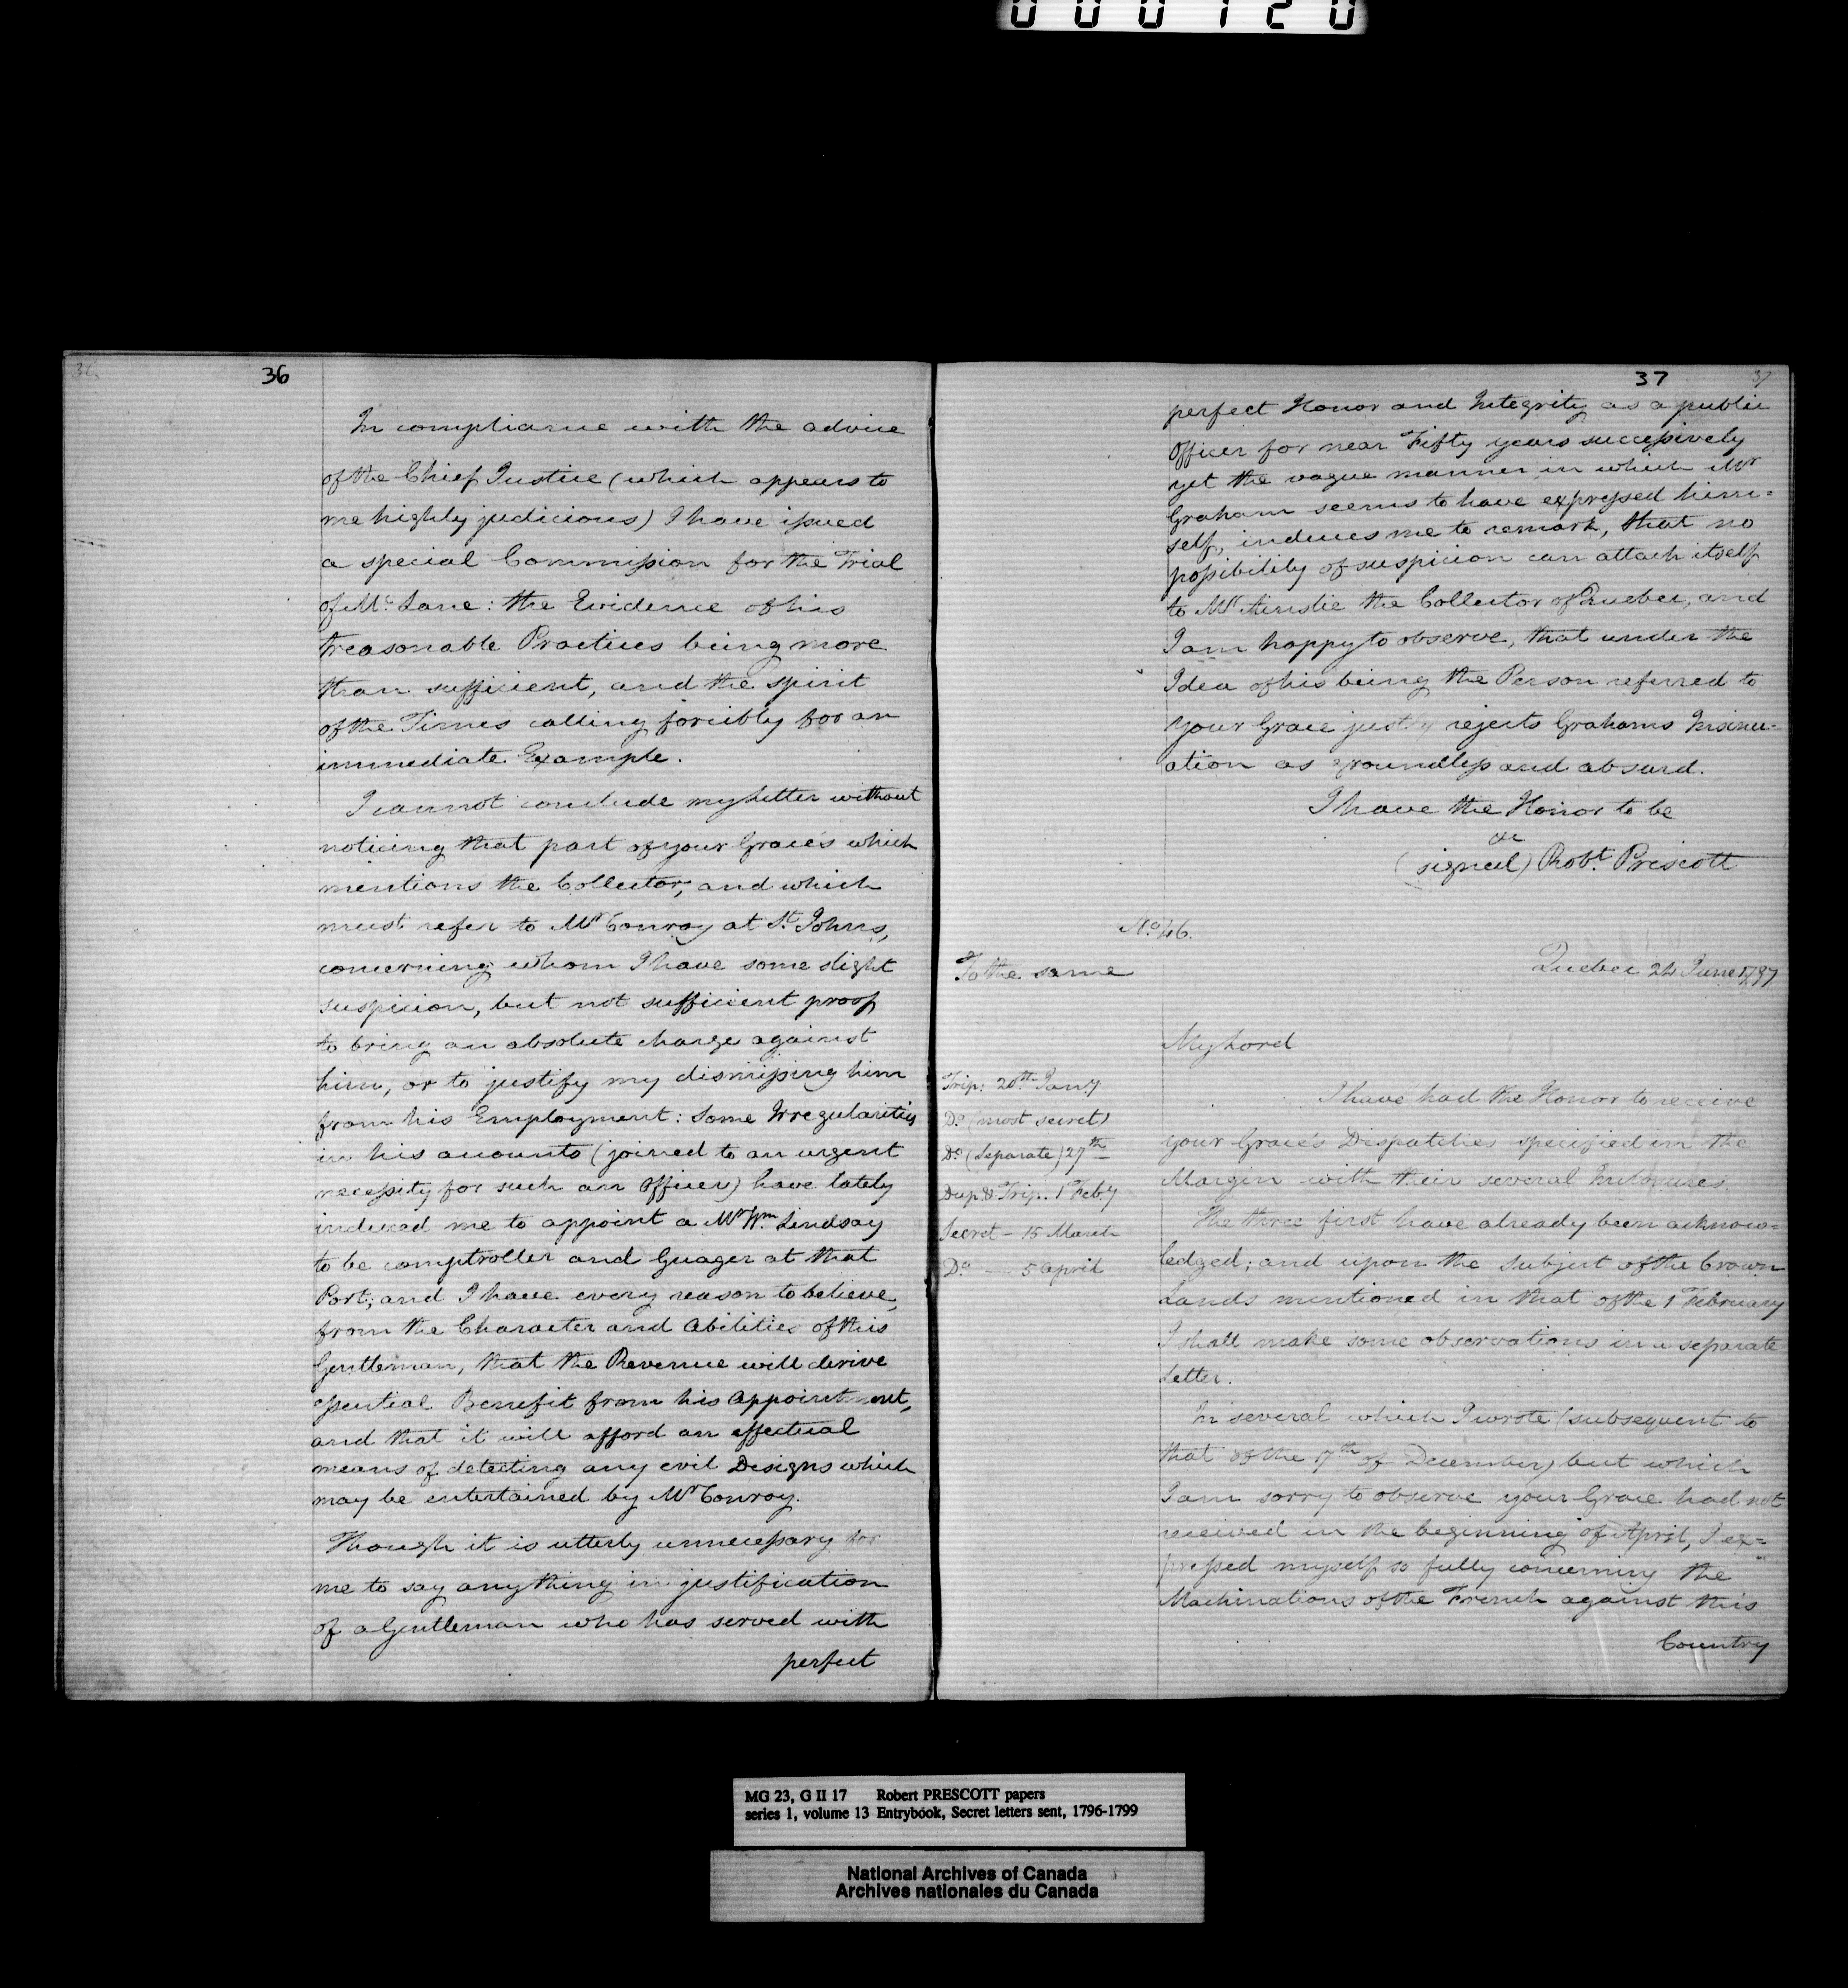 000120
36
36
In compliance with the advice
of the Chief Justice (which appears to
me highly judicious) I have issued
a special Commission for the Trial
of Mc. Lane: the Evidence of his
treasonable Practices being more
than sufficient, and the spirit
of the Times calling forcibly for an
immediate Example.
I cannot conclude my Letter without
noticing that part of your Grace's which
mentions the Collector; and which
must refer to Mr Conroy at St. Johns,
concerning whom I have some slight
suspicion, but not sufficient proof
to bring an absolute charge against
him, or to justify my dismissing him
from his Employment: Some Irregularities
in his accounts (joined to an urgent
necessity for such an Officer) have lately
induced me to appoint a Mr Wm. Lindsay
to be comptroller and Guager at that
Port; and I have every reason to believe,
from the Character and Abilities of this
Gentleman, that the Revenue will derive
essential Benefit from his Appointment,
and that it will afford an effectual
means of detecting any evil Designs which
may be entertained by Mr Conroy.
Though it is utterly unnecessary for
me to say anything in justification
of a Gentleman who has served with
perfect
37
37
perfect Honor and Integrity as a public
Officer for near Fifty years successively
yet the vague manner in which Mr
Graham seems to have expressed him=
self, induces me to remark, that no
possibility of suspicion can attach itself
to Mr Ainslie the Collector of Quebec, and
I am happy to observe, that under the
Idea of his being the Person referred to
your Grace justly rejects Grahams Insinu-
ation as groundless and absurd.
I have the Honor to be
&c
(signed) Robt. Prescott
No. 46.
To the same
Quebec 24 June 1797
My Lord
Trip: 20th. Jany.
Do. (most secret)
Do. (Separate) 27th
Dup. & Trip. 1 Feby
Secret - 15 March
Do. — 5 April
I have had the Honor to receive
your Grace's Dispatches specified in the
Margin with their several Inclosures.
The three first have already been acknow=
ledged; and upon the Subject of the Crown
Lands mentioned in that of the 1 February
I shall make some observations in a separate
Letter.
In several which I wrote (subsequent to
that of the 17th of December) but which
I am sorry to observe your Grace had not
received in the beginning of April, I ex=
pressed myself so fully concerning the
Machinations of the French against this
Country
MG 23, G II 17 Robert PRESCOTT papers
series 1, volume 13 Entrybook, Secret letters sent, 1796-1799
National Archives of Canada
Archives nationales du Canada